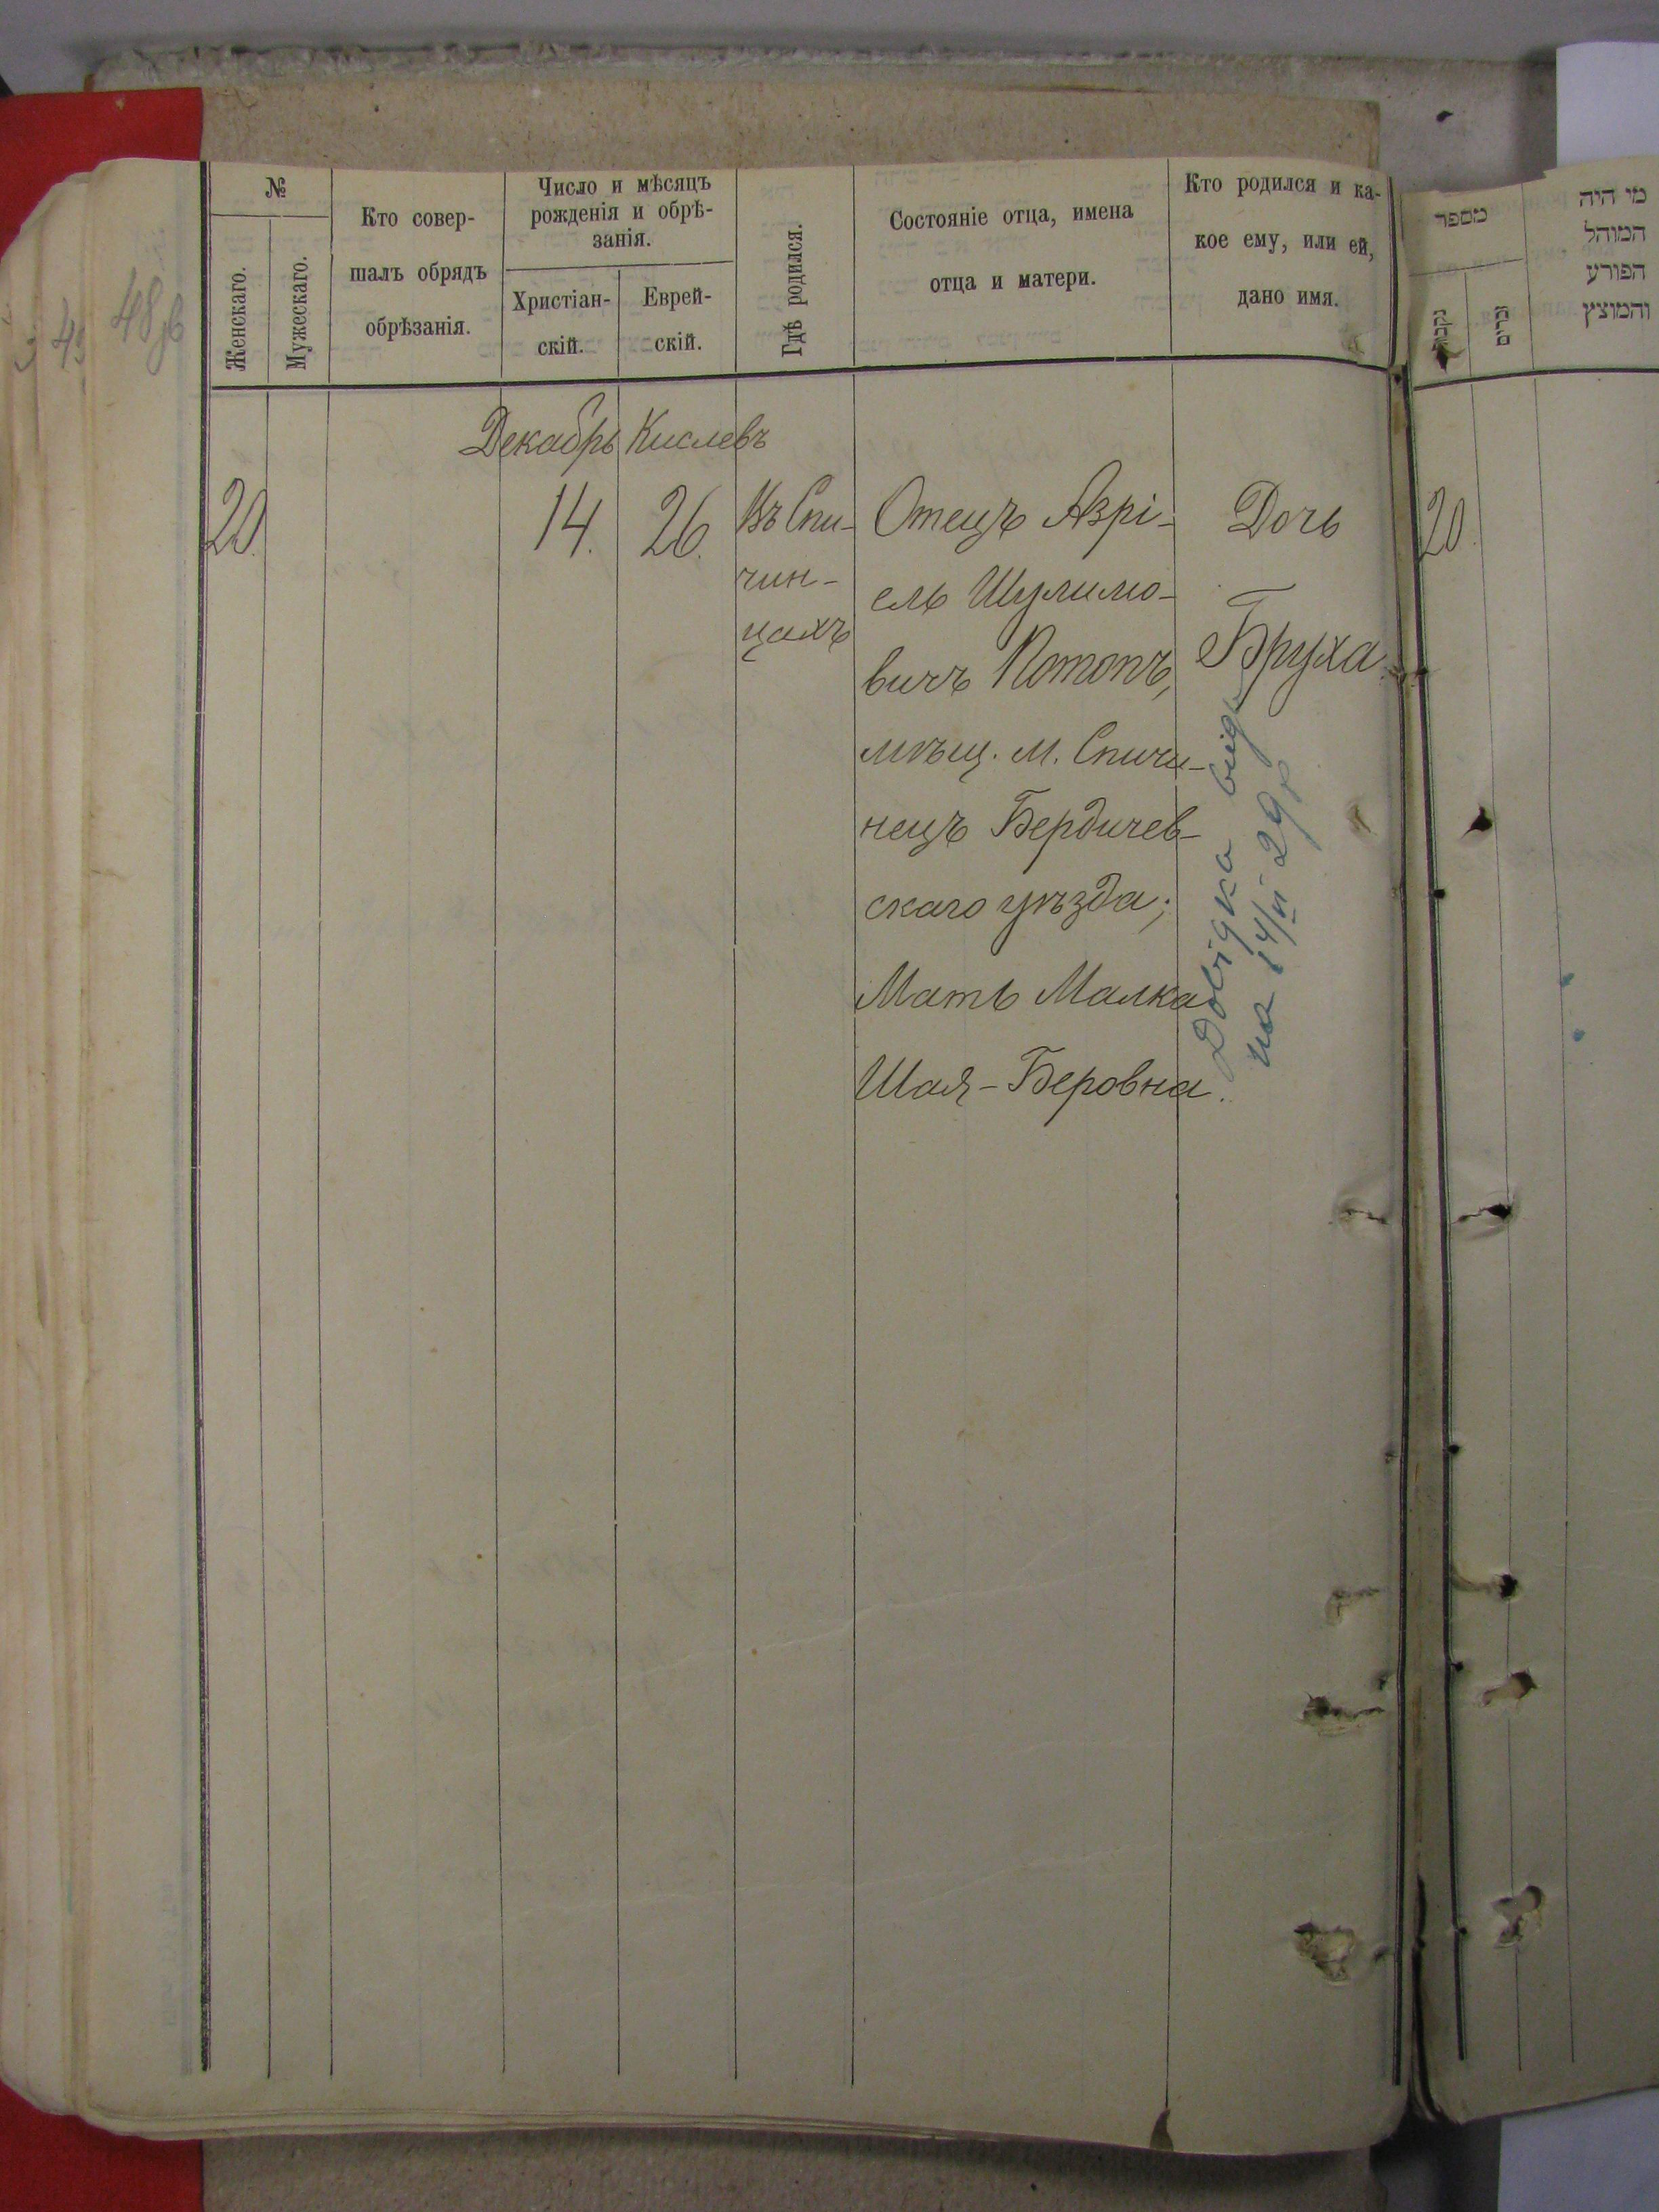 №
Женскаго.
Мужескаго.
Кто совер-
шалъ обрядъ
обрѣзанія.
Число и мѣсяцъ
рожденія и обрѣ-
занія.
Христіан-
скій.
Еврей-
скій.
Гдѣ родился.
Состояніе отца, имена
отца и матери.
Кто родился и ка-
кое ему, или ей,
дано имя.
Декабрь Кислевъ
20.
14.
26.
Въ Спи-
чин-
цахъ
Отецъ Азрі-
ель Шулимо-
вичъ Потопъ,
мѣщ. м. Спичи-
нецъ Бердичев-
скаго уѣзда;
Мать Малка
Шая-Беровна.
Дочь
Бруха
Довідка
на 14/II 29 р
48
מספר
נקבות
זכרים
מי היה
המוהל
הפורע
והמוצץ
20.